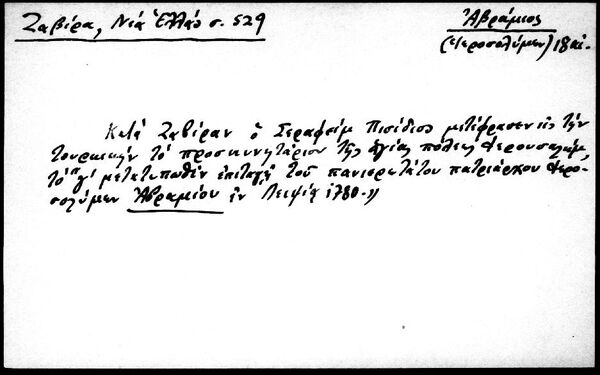 Ζαβίρα, Νέα Ἑλλάς σ. 529
Ἀβράμιος
(Ἱεροσολύμων) 18 αἰ.
Κατὰ Ζαβίραν ὁ Σεραφεὶμ Πισίδιος μετέφρασεν εἰς τὴν
τουρκικὴν τὸ προσκυνητάριον τῆς ἁγίας πόλεως Ἱερουσαλήμ,
τὸ μετατυπωθὲν ἐπιταγῇ τοῦ πανιερωτάτου πατριάρχου Ἱερο-
σολύμων Ἀβραμίου ἐν Λειψίᾳ 1780.»